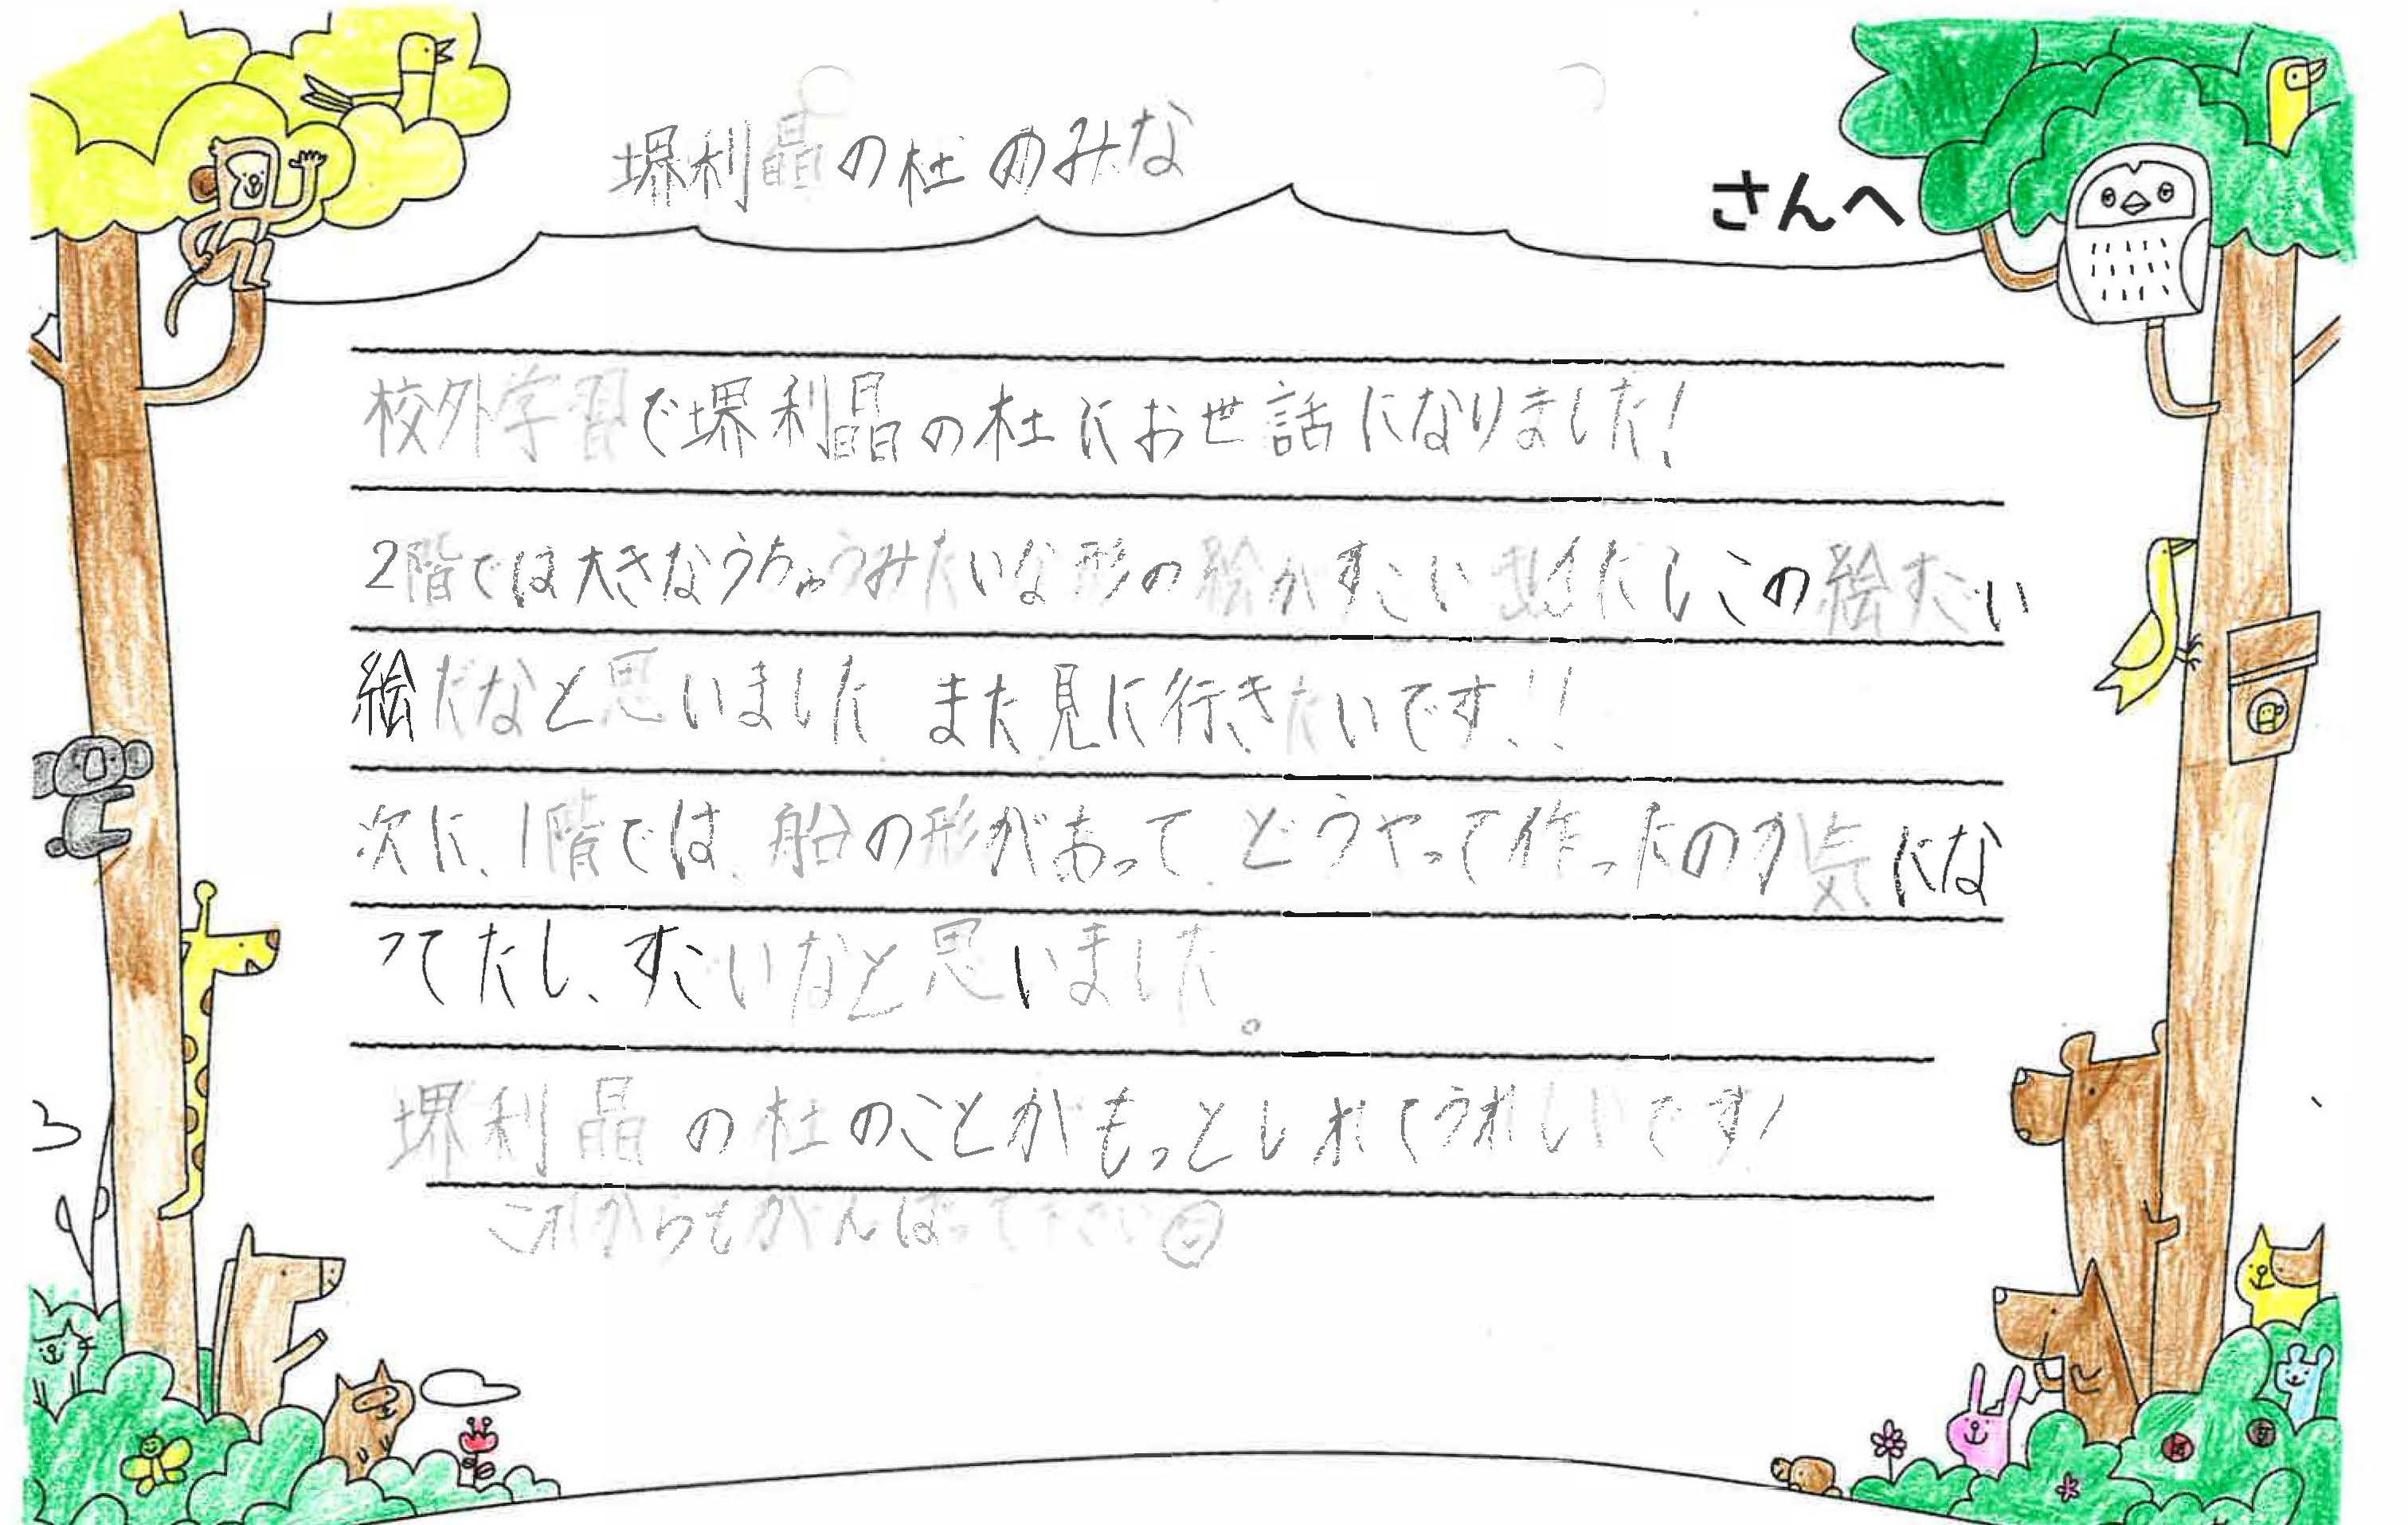 堺利晶の杜のみな
さんへ
校外学習で堺利晶の杜にお世話になりました!
2階では大きなうちゅうみたいな形の絵がすごい だしこの絵すごい
絵だなと思いました また見に行きたいです!!
次に、1階では、船の形があって、どうやって作ったのか気にな
ってたし、すごいなと思いました。
堺利晶の杜のことがもっとしれてうれしいです!
これからもがんばって下さい